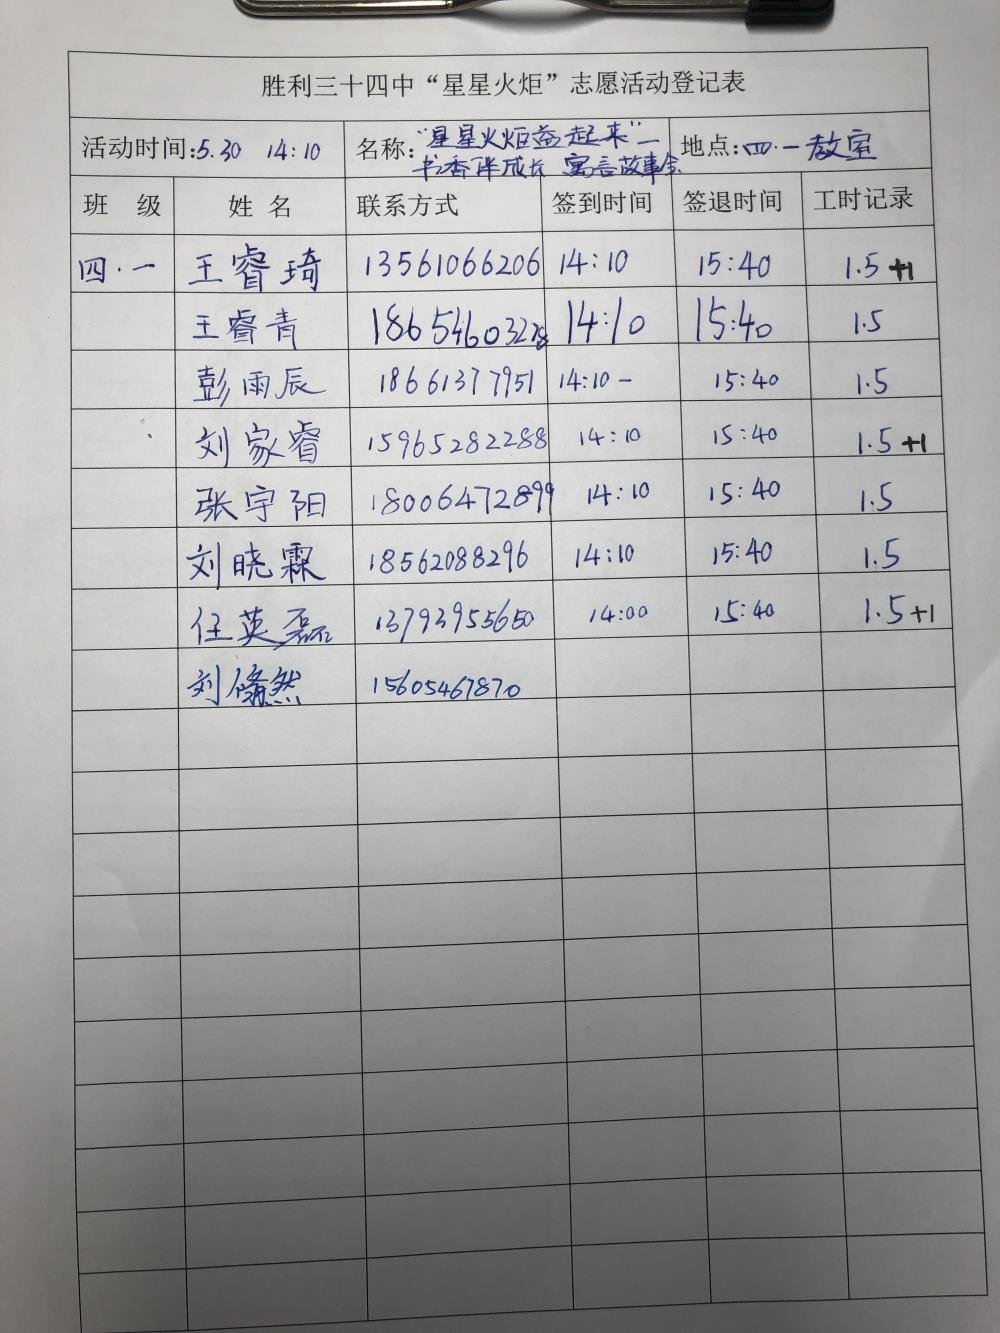 胜利三十四中“星星火炬”志愿活动登记表
活动时间:5.30 14:10 名称:“星星火炬益起来”— 地点:四·一教室
书香伴成长 寓言故事会
班 级 姓 名 联系方式 签到时间 签退时间 工时记录
四·一 王睿琦 13561066206 14:10 15:40 1.5+1
王睿青 18654603278 14:10 15:40 1.5
彭雨辰 18661377951 14:10- 15:40 1.5
刘家睿 15965282288 14:10 15:40 1.5+1
张宇阳 18006472899 14:10 15:40 1.5
刘晓霖 18562088296 14:10 15:40 1.5
任英磊 13793955650 14:00 15:40 1.5+1
刘倏然 15605467870